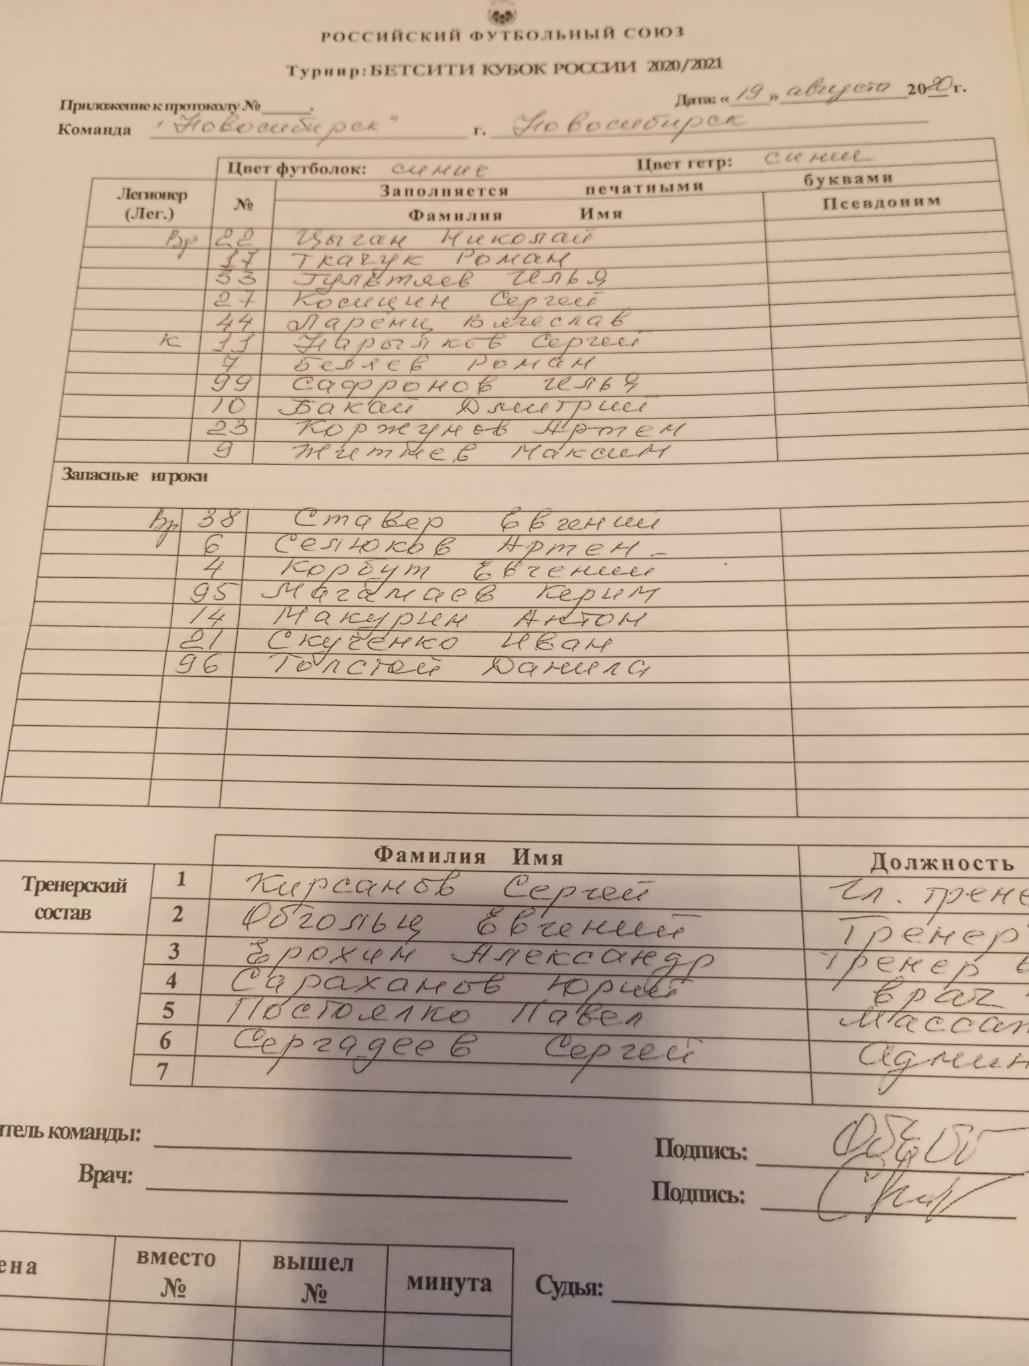 РОССИЙСКИЙ ФУТБОЛЬНЫЙ СОЮЗ
Турнир: БЕТСИТИ КУБОК РОССИИ 2020/2021
Дата: «19» августа 2020 г.
Приложение к протоколу № ______.
Команда "Новосибирск" г. Новосибирск
Цвет футболок: синие Цвет гетр: синие
Легионер (Лег.) № Заполняется печатными буквами
Фамилия Имя Псевдоним
Вр 22 Цыган Николай
17 Ткачук Роман
33 Гультяев Илья
27 Косицин Сергей
44 Ларенц Вячеслав
К 11 Нарылков Сергей
7 Беляев Роман
99 Сафронов Илья
10 Бакай Дмитрий
23 Коржунов Артем
9 Житнев Максим
Запасные игроки
Вр 38 Ставер Евгений
6 Селюков Артем
4 Корбут Евгений
95 Магамаев Керим
14 Макурин Антон
21 Скученко Иван
96 Толстой Данила
Фамилия Имя Должность
Тренерский состав
1 Кирсанов Сергей Гл. трене
2 Обгольц Евгений Тренер
3 Ерохин Александр Тренер в
4 Сараханов Юрий врач
5 Постоялко Павел Массаж
6 Сергадеев Сергей Админ
7
итель команды: Подпись:
Врач: Подпись:
ена вместо № вышел № минута
Судья: